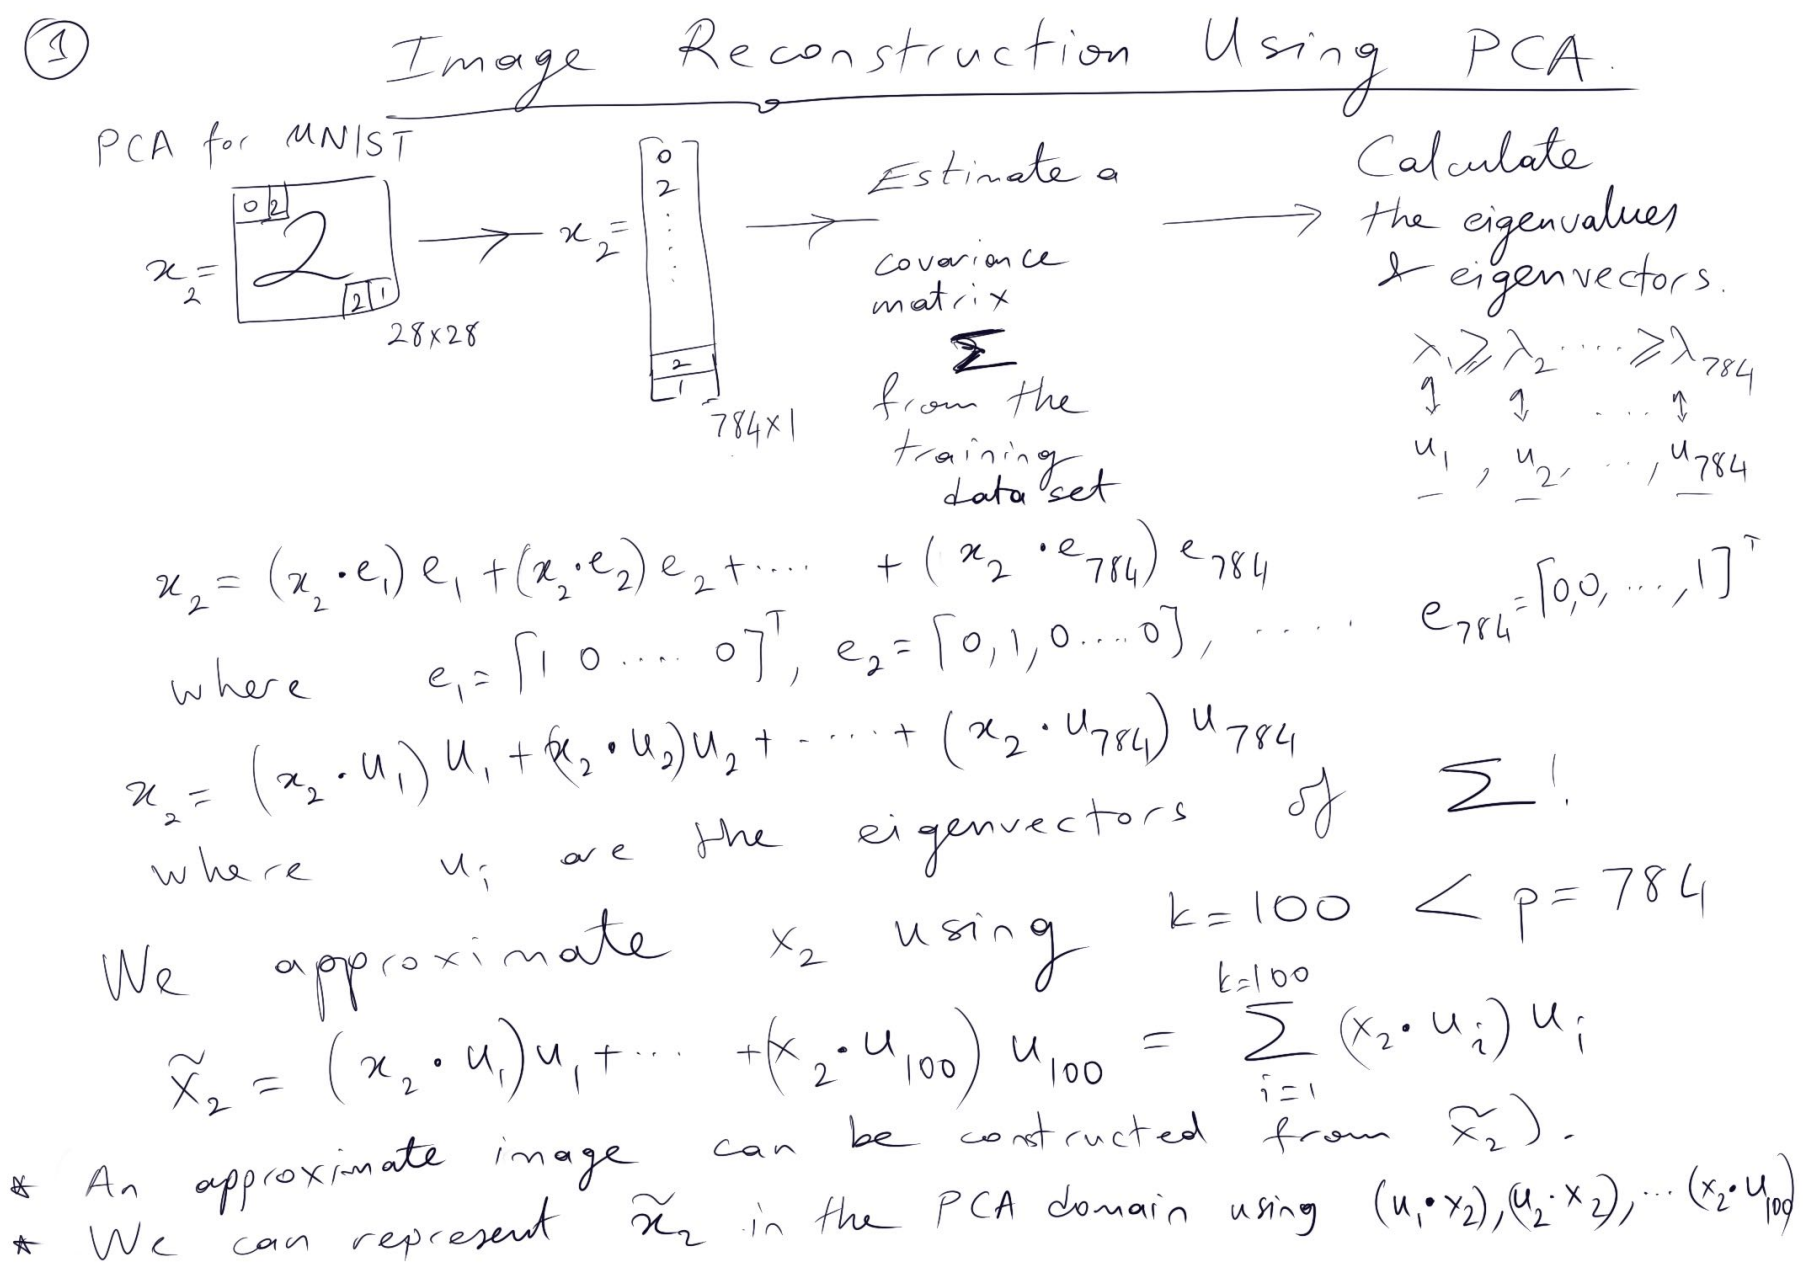 ① Image Reconstruction Using PCA.
PCA for MNIST
x₂ =
0 2
2
2 1
28×28
x₂ =
0
2
⋮
2
1
784×1
Estimate a
covariance
matrix
Σ
from the
training
data set
Calculate
the eigenvalues
& eigenvectors.
λ₁ ≥ λ₂ ..... ≥ λ₇₈₄
↕ ↕ .... ↕
u₁, u₂, ..., u₇₈₄
x₂ = (x₂·e₁) e₁ + (x₂·e₂) e₂ + ..... + (x₂·e₇₈₄) e₇₈₄
where e₁ = [1 0 ..... 0]ᵀ, e₂ = [0,1,0....0], ..... e₇₈₄ = [0,0, ...,1]ᵀ
x₂ = (x₂·u₁) u₁ + (x₂·u₂) u₂ + ..... + (x₂·u₇₈₄) u₇₈₄
where uᵢ are the eigenvectors of Σ!
We approximate x₂ using k=100 < p=784
x̃₂ = (x₂·u₁) u₁ + ... + (x₂·u₁₀₀) u₁₀₀ = Σ_{i=1}^{k=100} (x₂·uᵢ) uᵢ
* An approximate image can be constructed from x̃₂).
* We can represent x̃₂ in the PCA domain using (u₁·x₂), (u₂·x₂), ... (x₂·u₁₀₀)